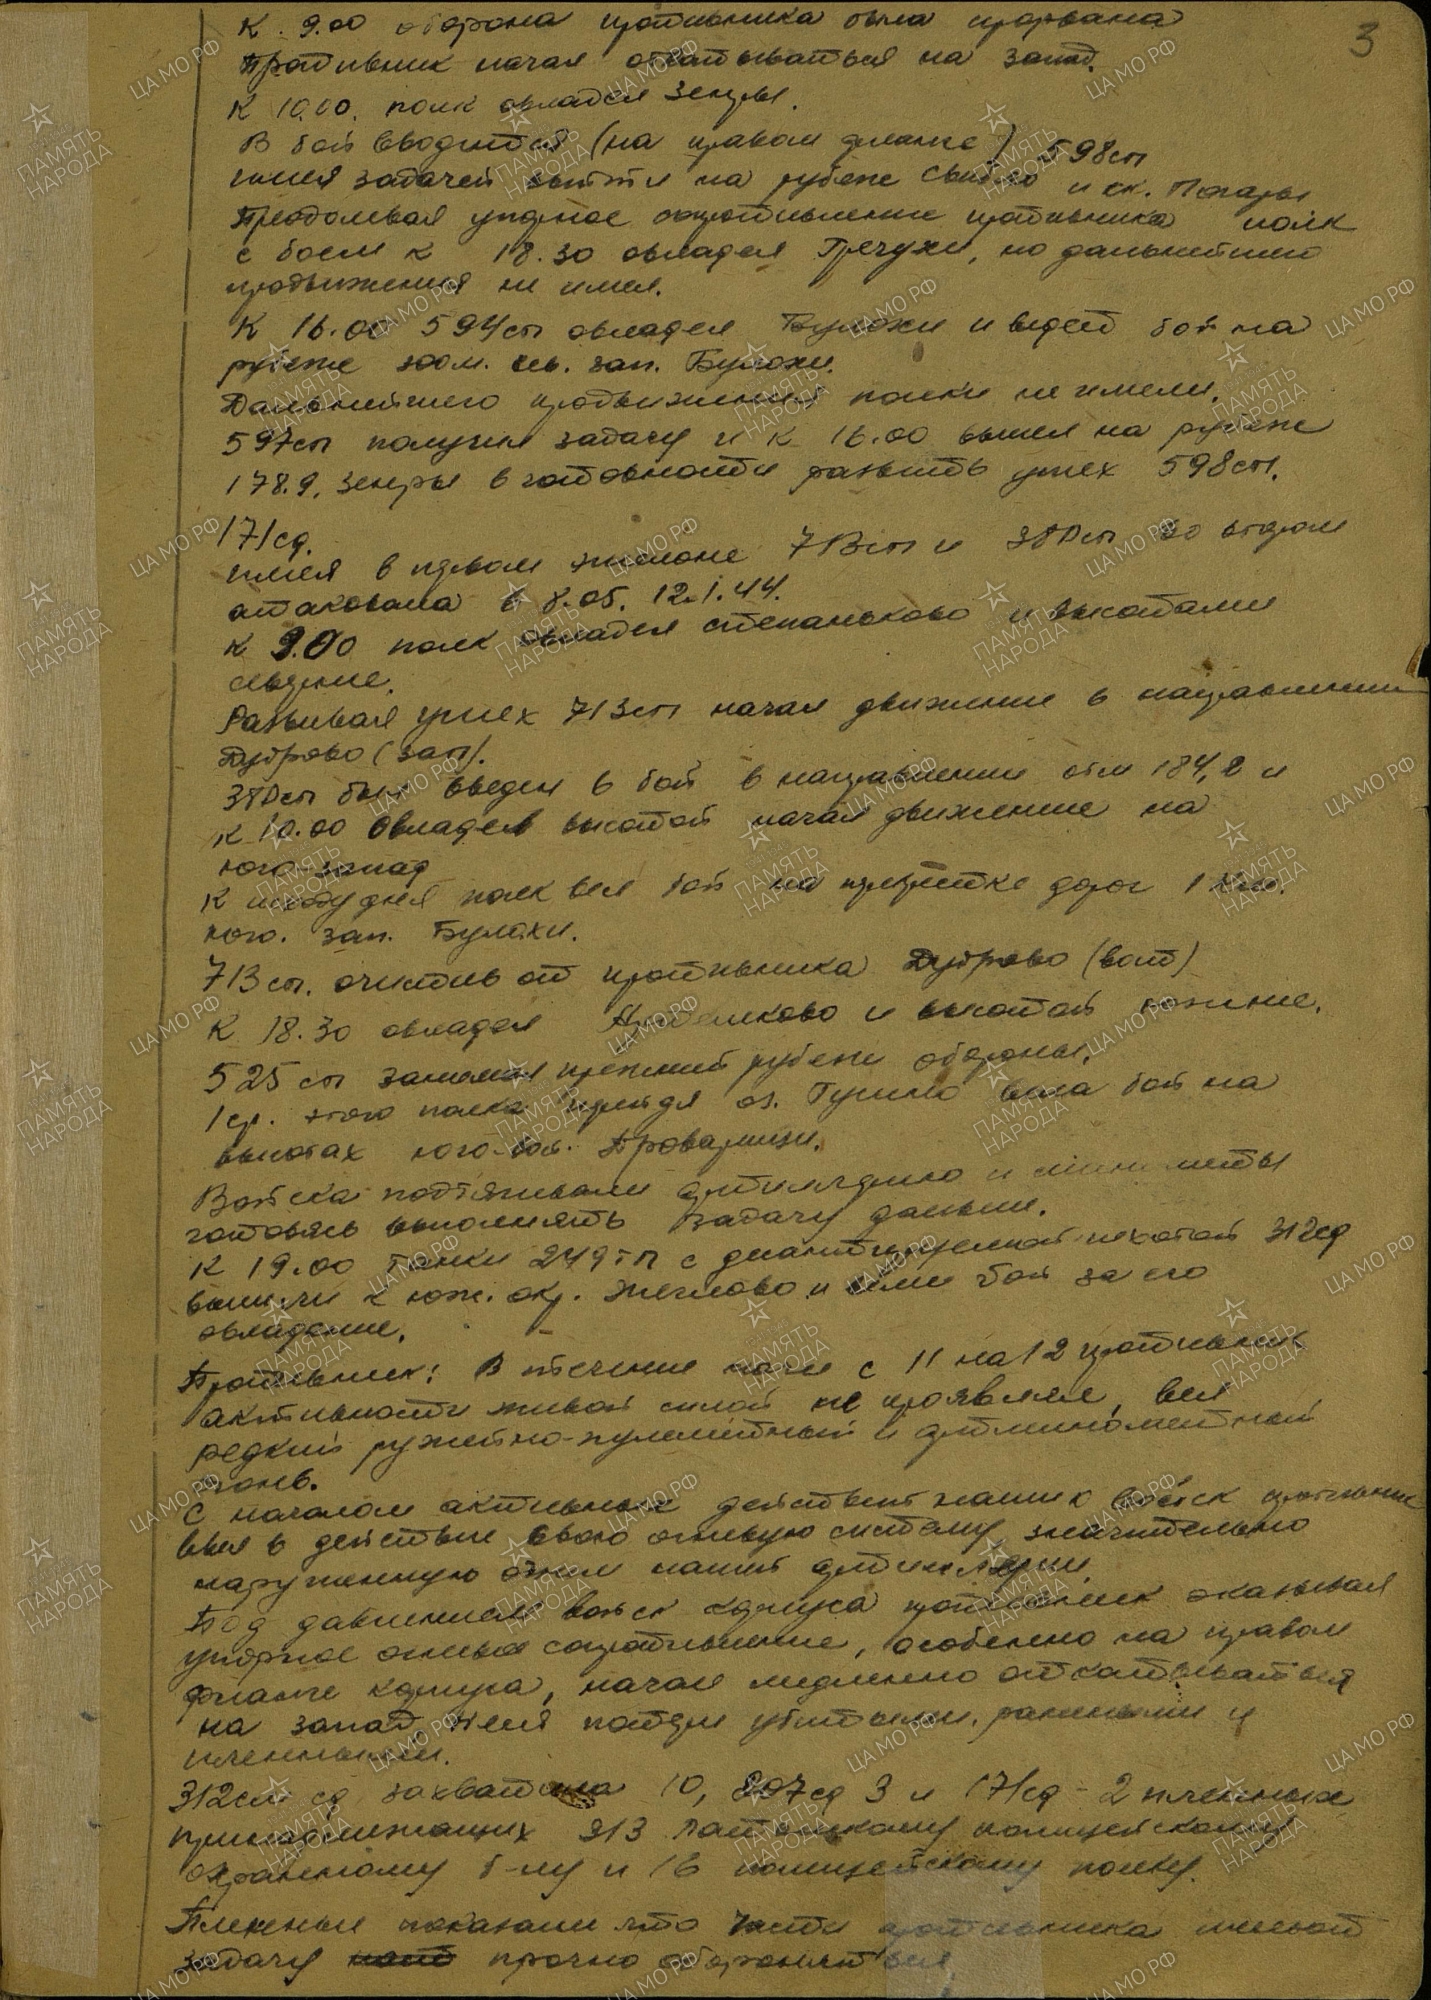 3
К 9.00 оборона противника была прорвана
Противник начал откатываться на запад.
К 10.00. полк овладел Зенры.
В бой вводится (на правом фланге) 598сп
имея задачей выйти на рубеж Свибло и ск. Пожары
Преодолевая упорное сопротивление противника полк
с боем к 18.30 овладел Гречухи, но дальнейшего
продвижения не имел.
К 16.00 594сп овладел Булохи и ведет бой на
рубеже 300м. сев. зап. Булохи.
Дальнейшего продвижения полки не имели.
597сп получил задачу и к 16.00 вышел на рубеж
178.9, Зенры в готовности развить успех 598сп.
171сд.
имея в первом эшелоне 713сп и 380сп во втором
атаковала в 8.05. 12.1.44.
к 9.00 полк овладел Степаньково и высотами
севернее.
Развивая успех 713сп начал движение в направлении
Дуброво (зап).
380сп был введен в бой в направлении отм 184,2 и
к 10.00 овладев высотой начал движение на
юго-запад
К исходу дня полк вел бой на перекрестке дорог 1 км.
юго. зап. Булохи.
713сп. очистив от противника Дуброво (вост)
К 18.30 овладел и высотой южнее.
525 сп занимал прежний рубеж обороны.
1ср. этого полка пройдя оз. Гусино вела бой на
высотах юго-вост.
Войска подтягивали артиллерию и минометы
готовясь выполнять задачу дальше.
К 19.00 танки 249тп с десантируемой пехотой 312сд
вышли к юж. окр. Жеглово и вели бой за его
овладение.
Противник: В течение ночи с 11 на 12 противник
активности живой силой не проявлял, вел
редкий ружейно-пулеметный и артминометный
огонь.
С началом активных действий наших войск противник
ввел в действие свою огневую систему значительно
нарушенную огнем нашей артиллерии.
Под давлением войск корпуса противник оказывая
упорное огневое сопротивление, особенно на правом
фланге корпуса, начал медленно откатываться
на запад неся потери убитыми, ранеными и
пленными.
312 сд захватила 10, 207сд 3 и 171сд - 2 пленных
принадлежащих 313 латышскому полицейскому
охранному б-ну и 16 полицейскому полку.
Пленные показали что части противника имеют
задачу прочно обороняться
ЦАМО РФ
ПАМЯТЬ
НАРОДА